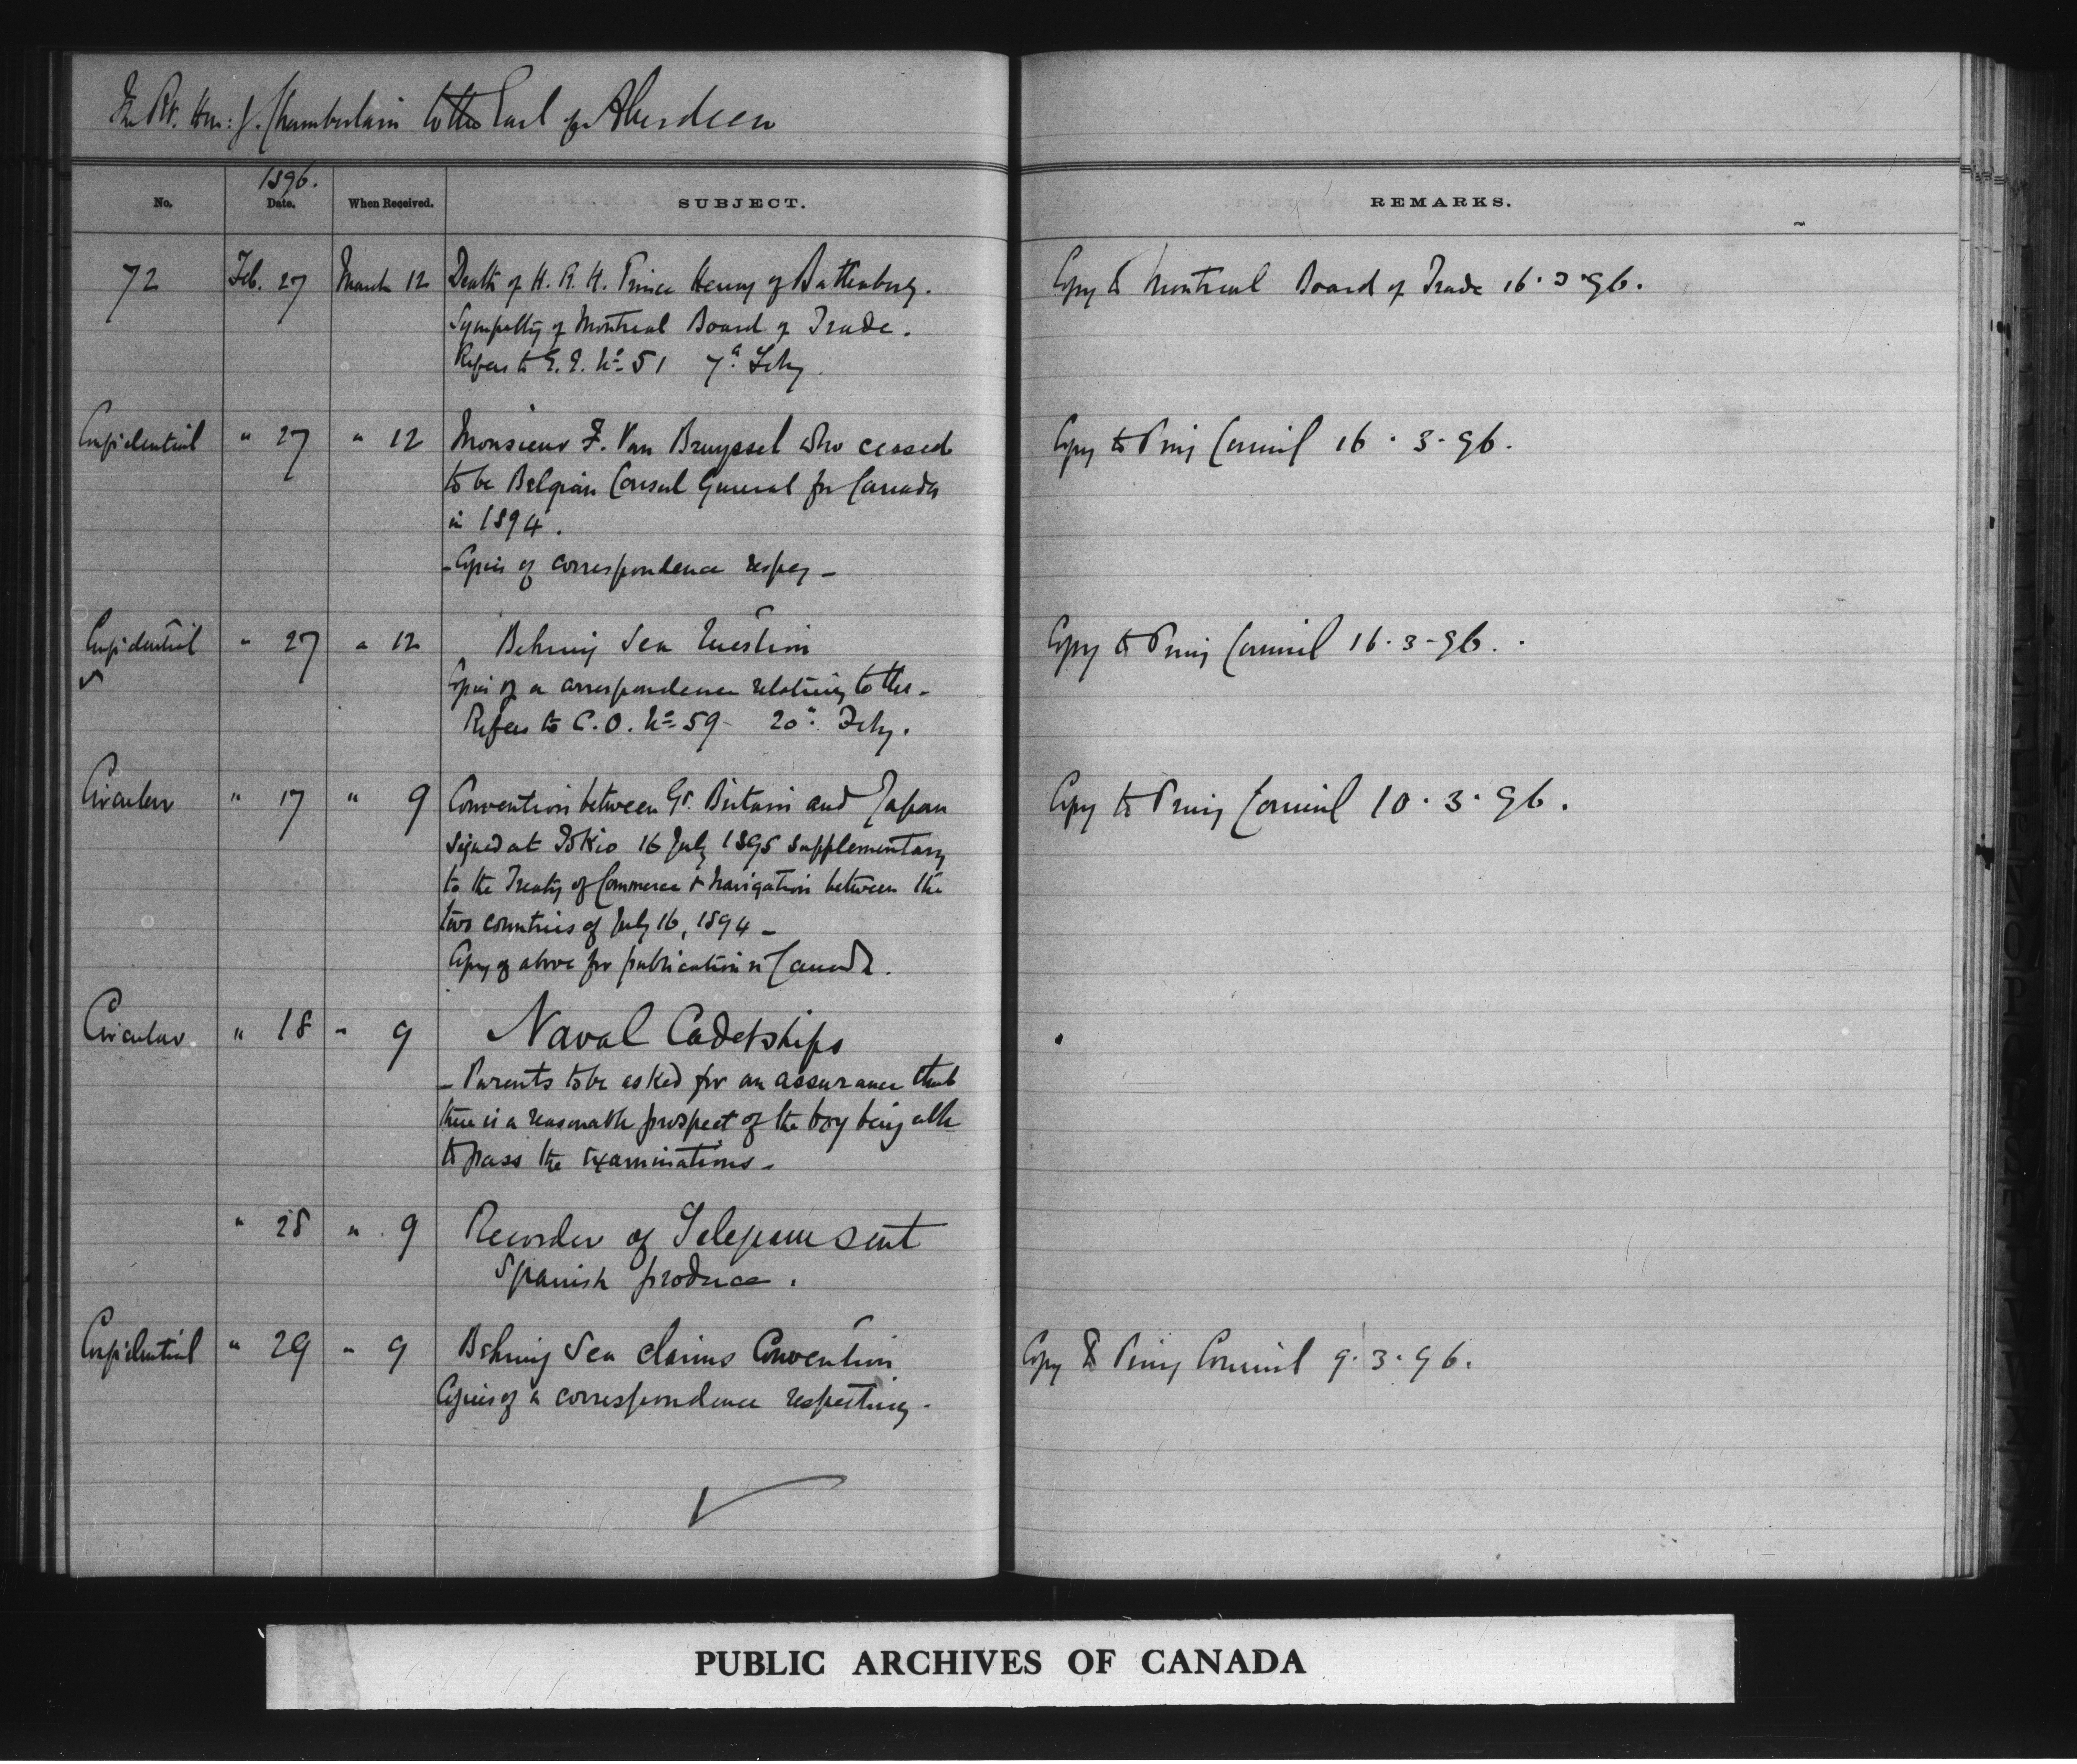 The Rt. Hon: J. Chamberlain to the Earl of Aberdeen
No. 1896. Date. When Received. SUBJECT. REMARKS.
72 Feb. 27 March 12 Death of H. R. H. Prince Henry of Battenberg. Copy to Montreal Board of Trade 16·3·96.
Sympathy of Montreal Board of Trade.
Refers to G. G. No 51 7th Feby.
Confidential " 27 " 12 Monsieur F. Van Bruyssel who ceased Copy to Privy Council 16·3·96.
to be Belgian Consul General for Canada
in 1894.
- Copies of correspondence respg -
Confidential " 27 " 12 Behring Sea Question Copy to Privy Council 16·3-96.
Copies of a correspondence relating to the -
Refers to C. O. No 59 - 20th Feby.
Circular " 17 " 9 Convention between Gt. Britain and Japan Copy to Privy Council 10·3·96.
signed at Tokio 16 July 1895 supplementary
to the Treaty of Commerce & Navigation between the
two countries of July 16, 1894 -
Copy of above for publication in Canada.
Circular " 18 " 9 Naval Cadetships
- Parents to be asked for an assurance that
there is a reasonable prospect of the boy being able
to pass the examinations -
" 28 " 9 of sent
Spanish produce.
Confidential " 29 " 9 Behring Sea claims Convention Copy to Privy Council 9·3·96.
Copies of a correspondence respecting -
PUBLIC ARCHIVES OF CANADA